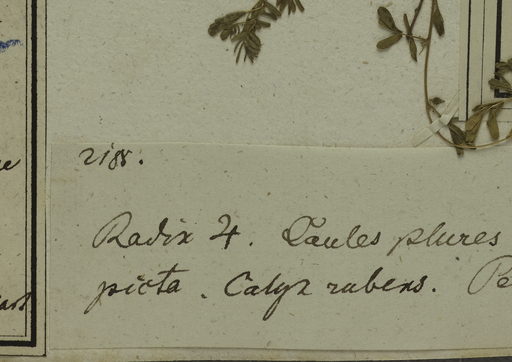 2188.
Radix ♃. Caules plures
picta. Calyx rubens. Pe